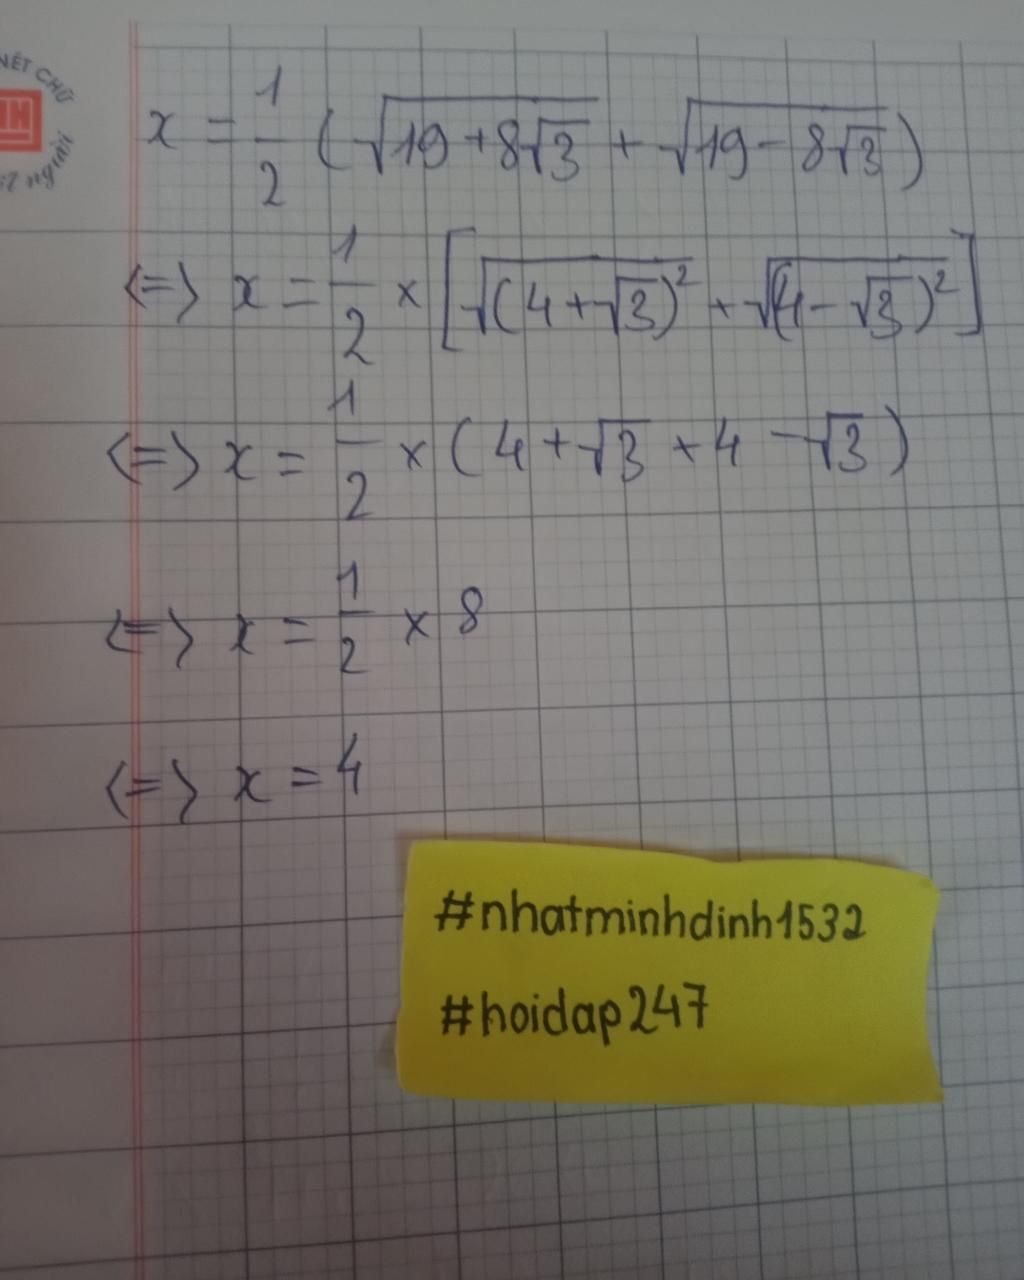 NÉT CHỮ
người
x = 1/2 (√(19 + 8√3) + √(19 - 8√3))
<=> x = 1/2 × [√((4 + √3)²) + √((4 - √3)²)]
<=> x = 1/2 × (4 + √3 + 4 - √3)
<=> x = 1/2 × 8
<=> x = 4
#nhatminhdinh1532
#hoidap247